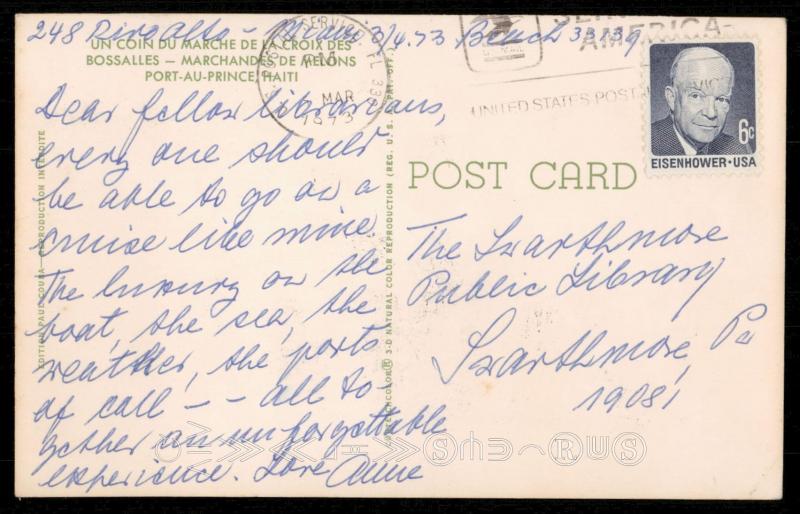 248 Rivo Alto - Miami 3/4.73 Beach 33139
UN COIN DU MARCHE DE LA CROIX DES
BOSSALLES - MARCHANDES DE MELONS
PORT-AU-PRINCE, HAITI
Dear fellow librarians,
every one should
be able to go on a
cruise like mine.
The luxury on the
boat, the sea, the
weather, the ports
of call - - all to-
gether an unforgettable
experience. Love Anne
PM
MAR
1973
AMERICA
UNITED STATES POSTAL SERVICE
6c
EISENHOWER·USA
POST CARD
The Swarthmore
Public Library
Swarthmore, Pa
19081
EDITION PAUL COUBA - REPRODUCTION INTERDITE
3-D NATURAL COLOR REPRODUCTION (REG. U.S.A. PAT. OFF.